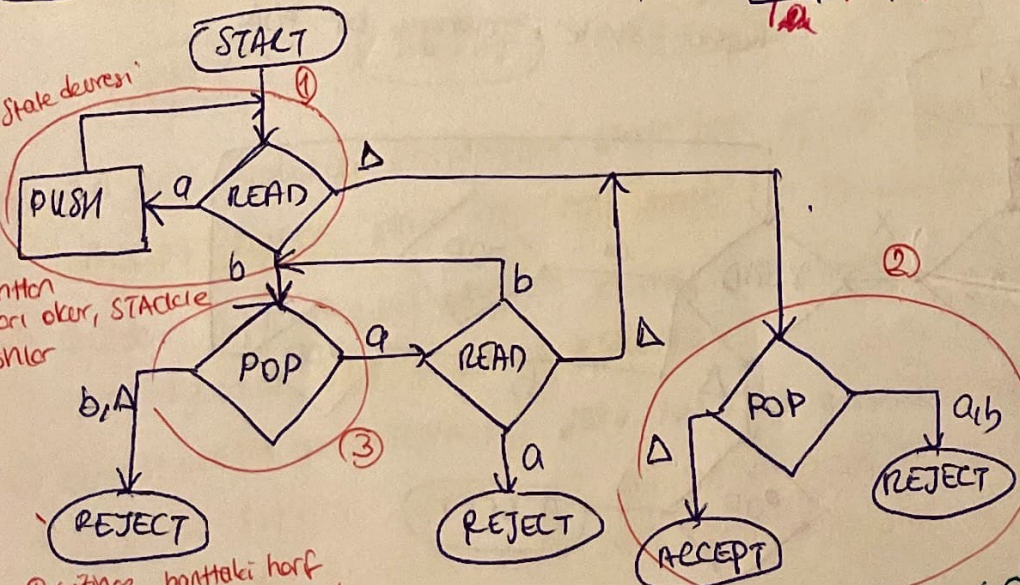 START
①
State devresi
Δ
PUSH
a
READ
b
②
okur, STACKe
b
POP
a
READ
Δ
b,Δ
③
a
POP
a,b
Δ
REJECT
REJECT
REJECT
ACCEPT
banttaki harf